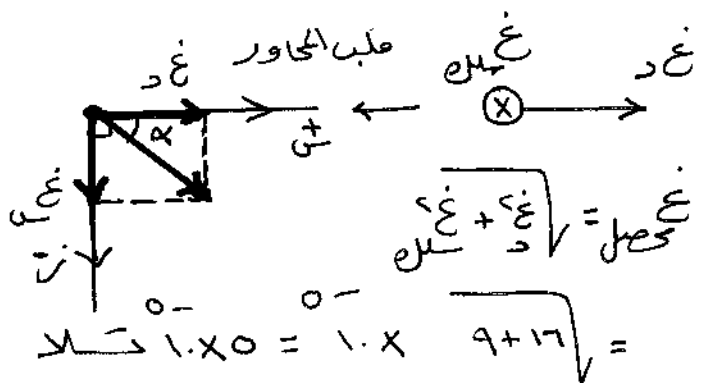 غ د  قلب المحاور  غ سلك  غ د
α  +س
غ س
+ز
غ محصل = √(غ²د + غ²سلك)
= √(١٦ + ٩) × ١٠⁻⁵ = ٥×١٠⁻⁵ تسلا